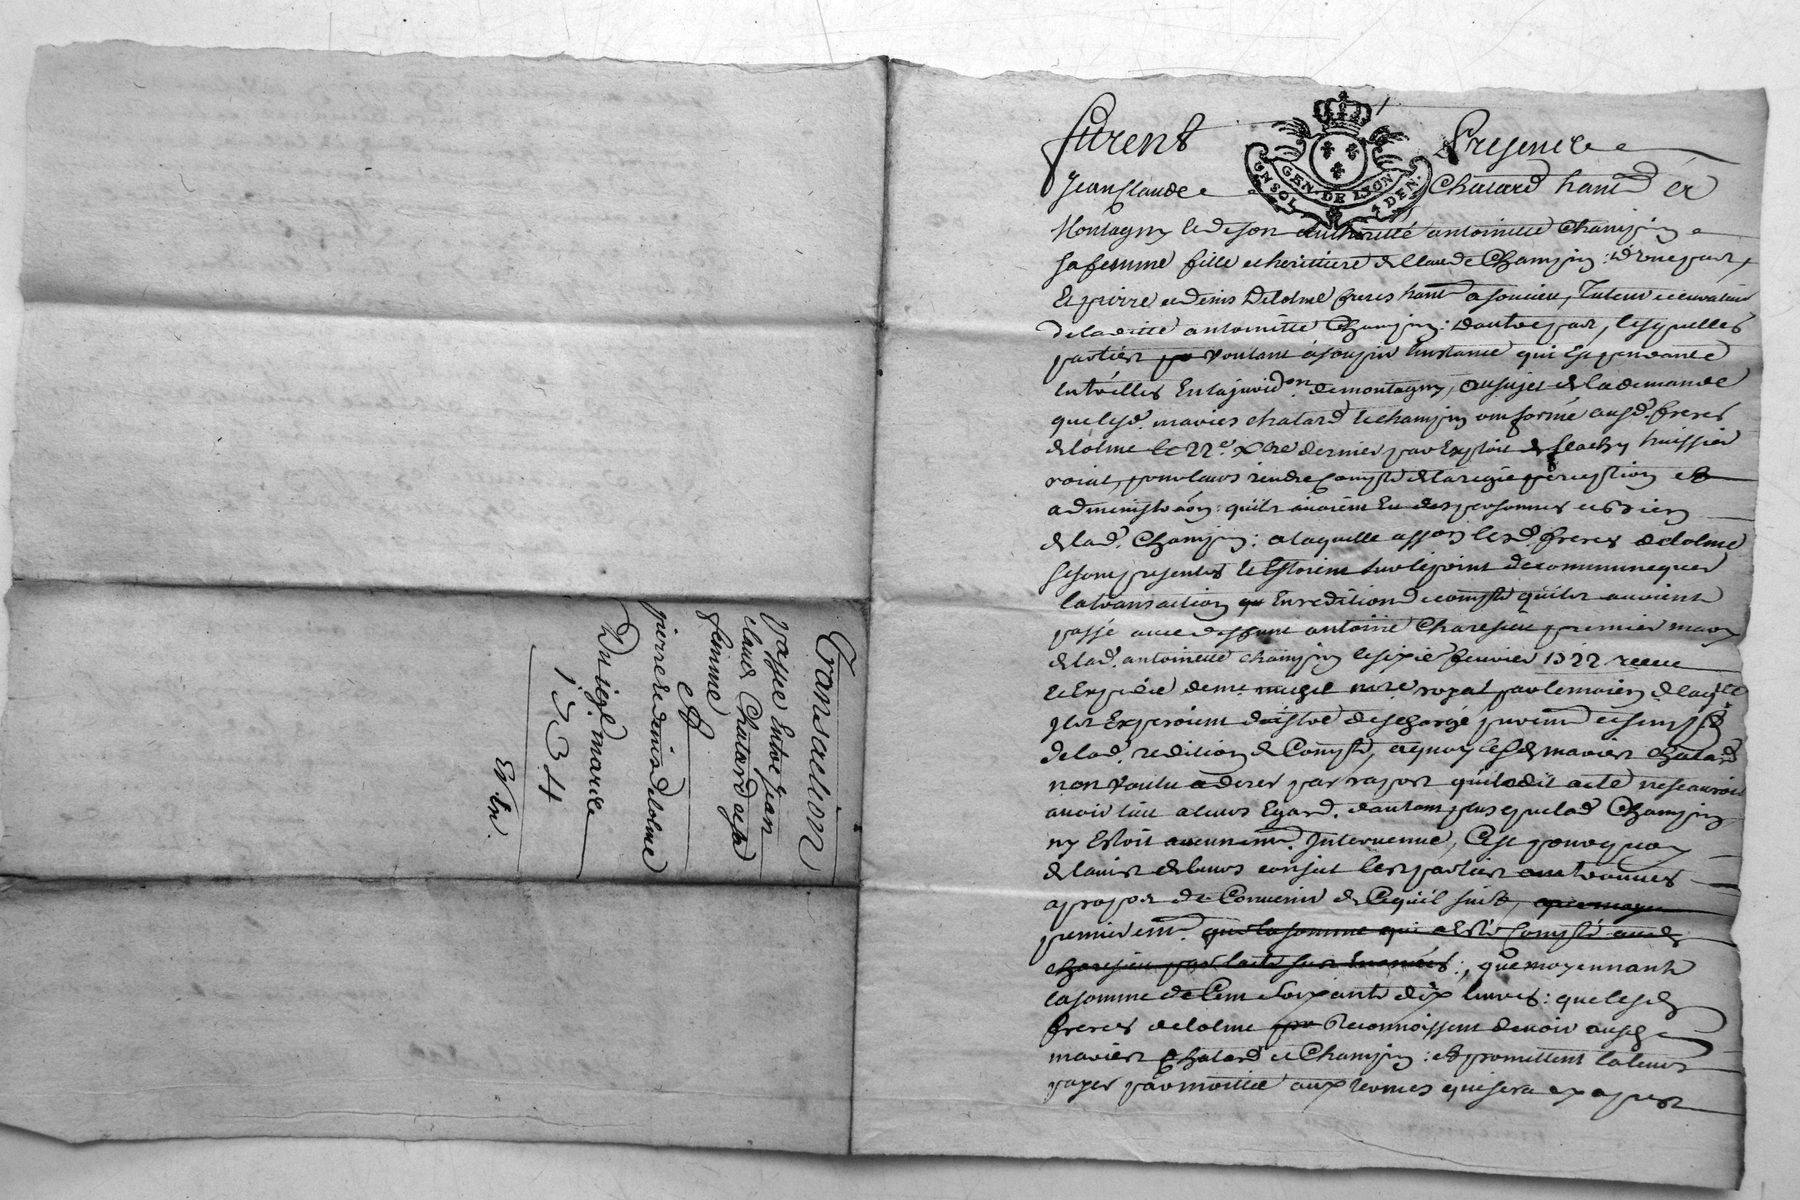 Transaction
passé Entre Jean
claude Chatard et sa
femme
Et
pierre et denis delolme
Du 19e mars
1734
furent Presents
GEN. DE LYON
Jean Claude Chatard hant er
Montagny et de son authorité antoinette Champin
sa femme fille et heritiere de Claude Champin : d'une part,
Et pierre et denis Delolme freres hant a soucieu, Tuteur et curateur
de la ditte antoinette Champin : dautre part, lesquelles
parties voulant asoupir linstance qui Est pendante
Entrelles En la jurid.on de montagny, au sujet de la demande
que lesd. mariés chatard et champin ont formé ausd. freres
delolme le 22e xbre dernier par Exploit de huissier
roial, pour leurs rendre Compte de la regie perception et
administraōn : quils avoient Eu des personnes et bien
de lad. Champin : a laquelle assōn lesd. freres delolme
se sont presentés et Estoient sur le point de communiquer
la transaction En redition de compte quils avoient
passé avec deffunt antoine Charesieu premier mary
de lad. antoinette champin le sixie fevrier 1722 receue
et Expediée de me. notre royal par le moien de laqlle
ils Esperoient destre dechargé
de lad. redition de Compte, a quoy lesd. mariés Chatard
nont voulu aderer par raport que ledit acte ne scauroit
avoir lieu a leurs Egard, dautant plus que lad Champin
ny Estoit aucunemt. Intervenue, Cest pourquoy
de lavis de leurs conseil les parties ont trouvés
apropos de Convenir de Ce quil suit,
premieremt. que la somme qui a Esté Compté aud.
: que moyennant
la somme de Cent soixante dix livres : que lesd.
freres delolme Reconnoissent devoir ausd.
mariés Chatard et Champin : et promettent la leurs
payer par moitie aux termes qui sera cy apres